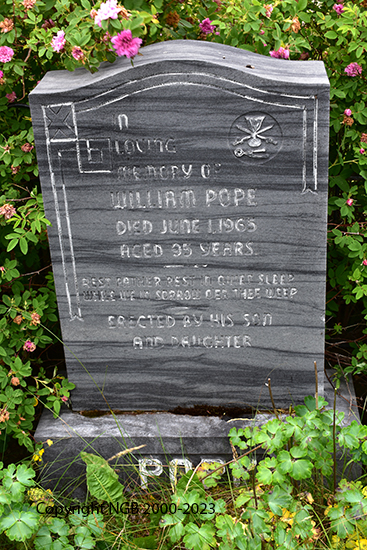 In
Loving
Memory of
WILLIAM POPE
DIED JUNE 1, 1963
AGED 95 YEARS
REST FATHER REST IN QUIET SLEEP
WHILE WE IN SORROW OER THEE WEEP
ERECTED BY HIS SON
AND DAUGHTER
POPE
Copyright NGB 2000-2023